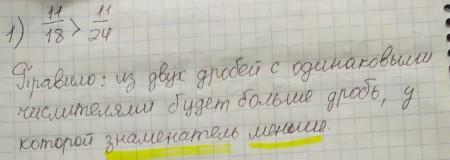 1) 11/18 > 11/24
Правило: из двух дробей с одинаковыми
числителями будет больше дробь, у
которой знаменатель меньше.